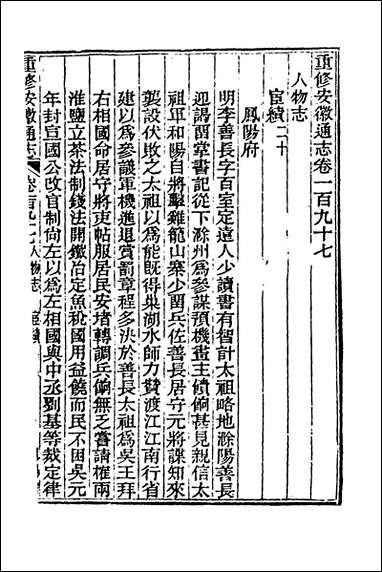 重修安徽通志卷一百九十七
人物志
宦績二十
鳳陽府
明李善長字百室定遠人少讀書有智計太祖略地滁陽善長
迎謁留掌書記從下滁州爲參謀預機畫主饋餉甚見親信太
祖軍和陽自將擊雞籠山寨少留兵佐善長居守元將諜知來
襲設伏敗之太祖以爲能旣得巢湖水師力贊渡江江南行省
建以爲參議軍機進退賞罰章程多決於善長太祖爲吳王拜
右相國命居守將吏帖服居民安堵轉調兵餉無乏嘗請榷兩
淮鹽立茶法制錢法開鐵冶定魚稅國用益饒而民不困吳元
年封宣國公改官制尙左以爲左相國與中丞劉基等裁定律
重修安徽通志
卷一百九十七人物志 宦績